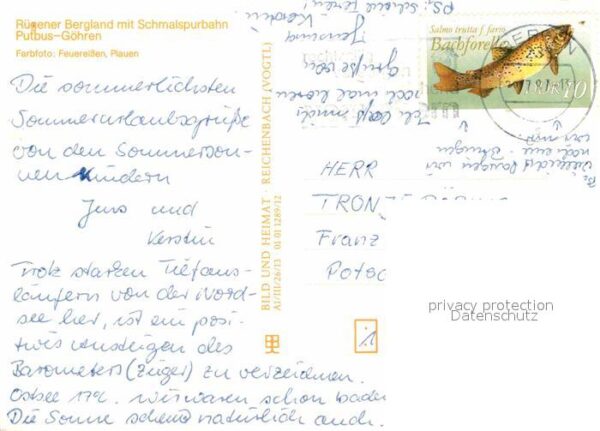 Rügener Bergland mit Schmalspurbahn
Putbus-Göhren
Farbfoto: Feuereißen, Plauen
Die sommerlichsten
Sommerurlaubsgrüße
von den Sommerson-
nenkindern
Jens und
Kerstin
Trotz starken Tiefaus-
läufern von der Nord-
see her, ist ein posi-
tives Ansteigen des
Barometers (Züger) zu verzeichnen.
Ostsee 17°C. wir waren schon baden
Die Sonne scheint natürlich auch.
BILD UND HEIMAT · REICHENBACH (VOGTL)
A1/III/26/13 01 01 1289/12
HERR
TRON
Franz
Potsd
Salmo trutta f. fario
Bachforelle
DDR 10
BERGEN
Ich
noch mal
Grüße von
Kerstin
PS,
privacy protection
Datenschutz